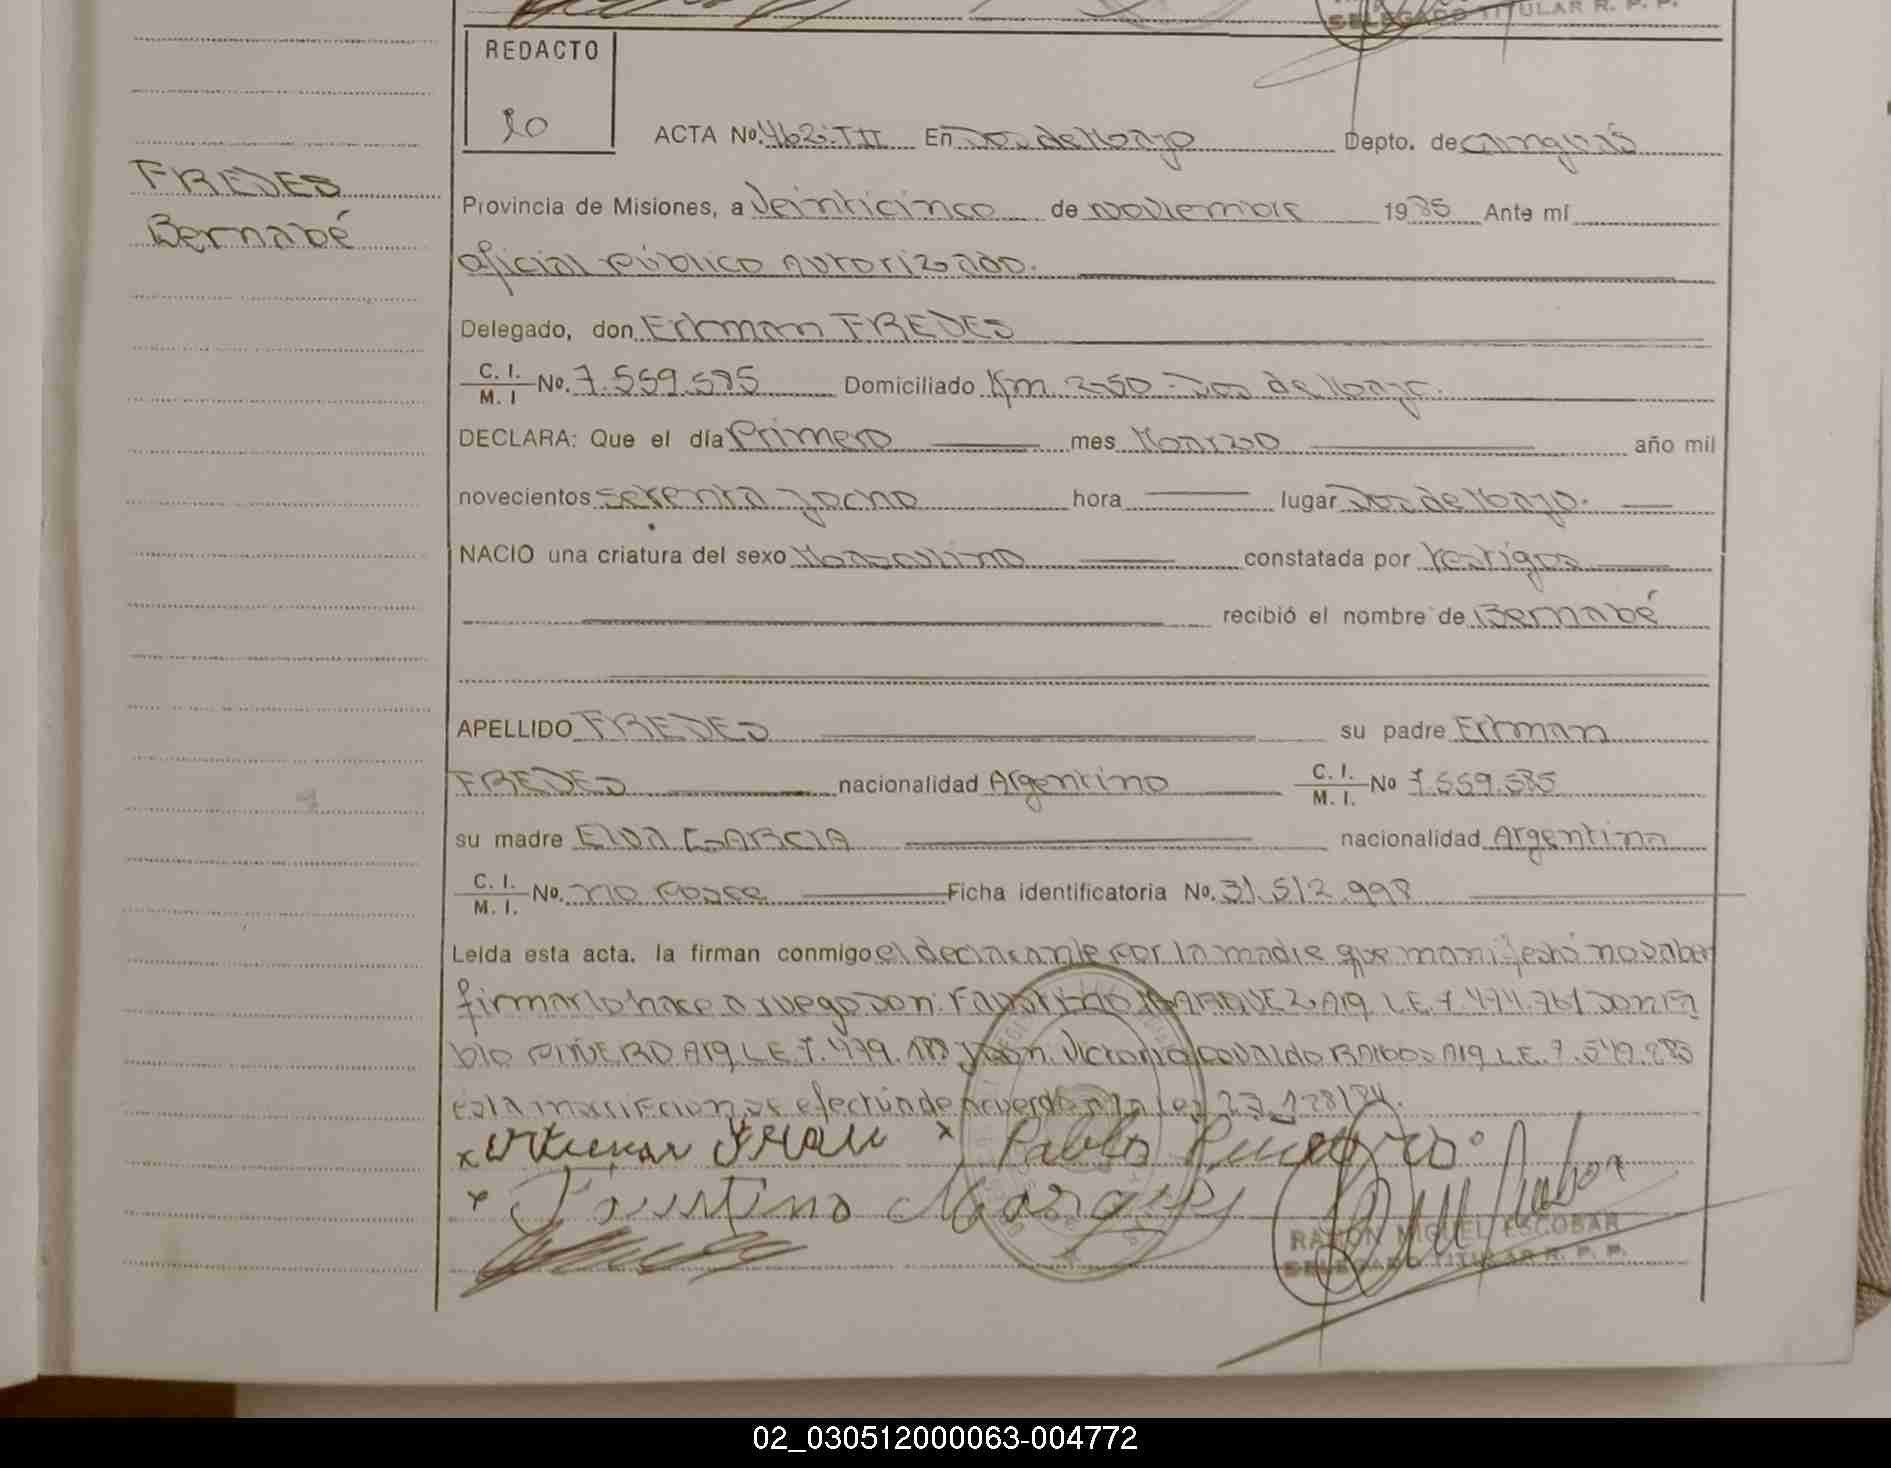 DELEGADO TITULAR R. P. P.
REDACTO
FREDES
Bernabé
ACTA No. 462. TII En Dos de Mayo Depto. de Cainguás
Provincia de Misiones, a Veinticinco de noviembre 1985 Ante mí
oficial público autorizado.
Delegado, don Erkman FREDES
C. I. / M. I No. 7.559.585 Domiciliado Km. 250 - Dos de Mayo.
DECLARA: Que el día Primero mes Marzo año mil
novecientos setenta y ocho hora lugar Dos de Mayo.
NACIO una criatura del sexo Masculino constatada por testigos
recibió el nombre de Bernabé
APELLIDO FREDES su padre Erkman
FREDES nacionalidad Argentino C. I. / M. I. No 7.559.585
su madre Elva GARCIA nacionalidad Argentina
C. I. / M. I. No. no posee Ficha identificatoria No. 31.512.998
Leída esta acta, la firman conmigo el declarante por la madre que manifestó no saber
firmar lo hace a ruego don: Faustino MARQUEZ Arg. L.E. 7.474.761 don Pa
blo PIÑERO Arg L.E. 7.479. y don Victorio Osvaldo Barbos Arg L.E. 7.549.283
esta inscripcion se efectúa de acuerdo a la Ley 23.128/84.
x x Pablo
x Faustino
RAMON MIGUEL ESCOBAR
DELEGADO TITULAR R. P. P.
02_030512000063-004772